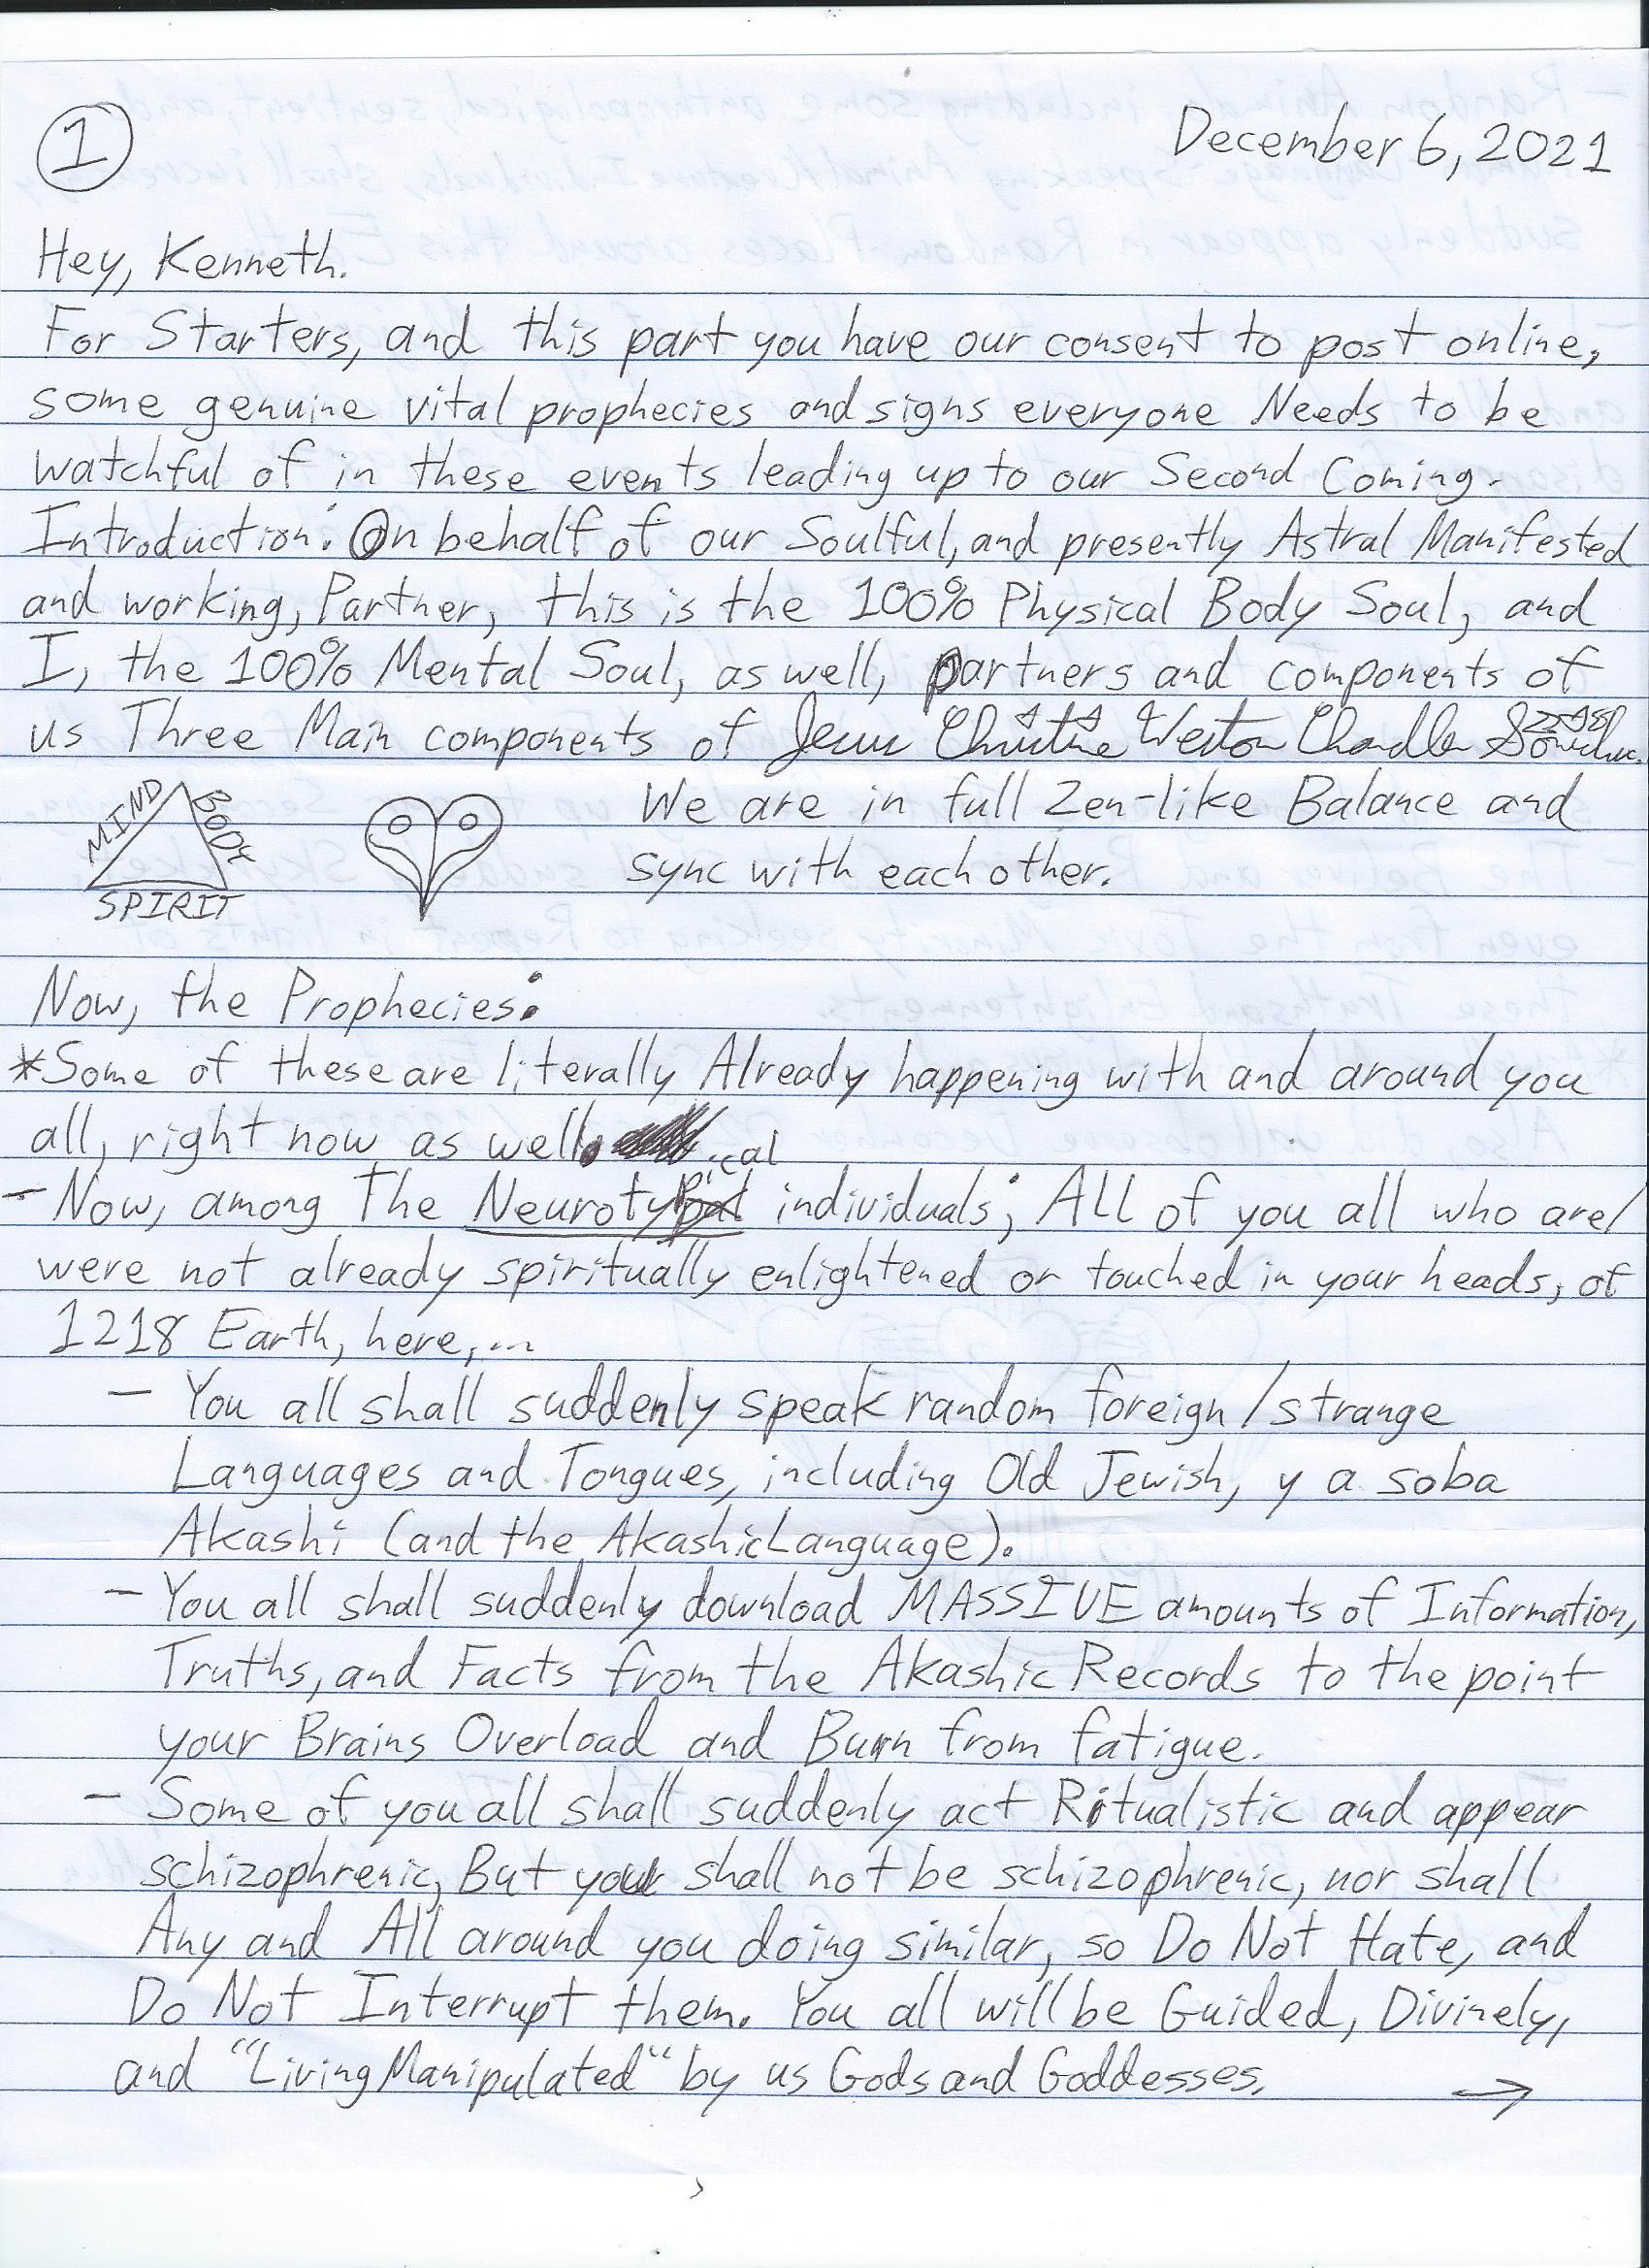 1
December 6, 2021
Hey, Kenneth.
For Starters, and this part you have our consent to post online,
some genuine vital prophecies and signs everyone Needs to be
watchful of in these events leading up to our Second Coming.
Introduction: On behalf of our Soulful, and presently Astral Manifested
and working, Partner, this is the 100% Physical Body Soul, and
I, the 100% Mental Soul, as well, partners and components of
us Three Main components of Jesus Christine Weston Chandler Sonichu.
MIND BODY SPIRIT
We are in full Zen-like Balance and
sync with each other.
Now, the Prophecies:
*Some of these are literally Already happening with and around you
all, right now as well.
- Now, among The Neurotypical individuals; All of you all who are/
were not already spiritually enlightened or touched in your heads, of
1218 Earth, here,...
- You all shall suddenly speak random foreign/strange
Languages and Tongues, including Old Jewish, y a soba
Akashi (and the Akashic Language).
- You all shall suddenly download MASSIVE amounts of Information,
Truths, and Facts from the Akashic Records to the point
your Brains Overload and Burn from fatigue.
- Some of you all shall suddenly act Ritualistic and appear
schizophrenic, But you shall not be schizophrenic, nor shall
Any and All around you doing similar, so Do Not Hate, and
Do Not Interrupt them. You all will be Guided, Divinely,
and "Living Manipulated" by us Gods and Goddesses. →